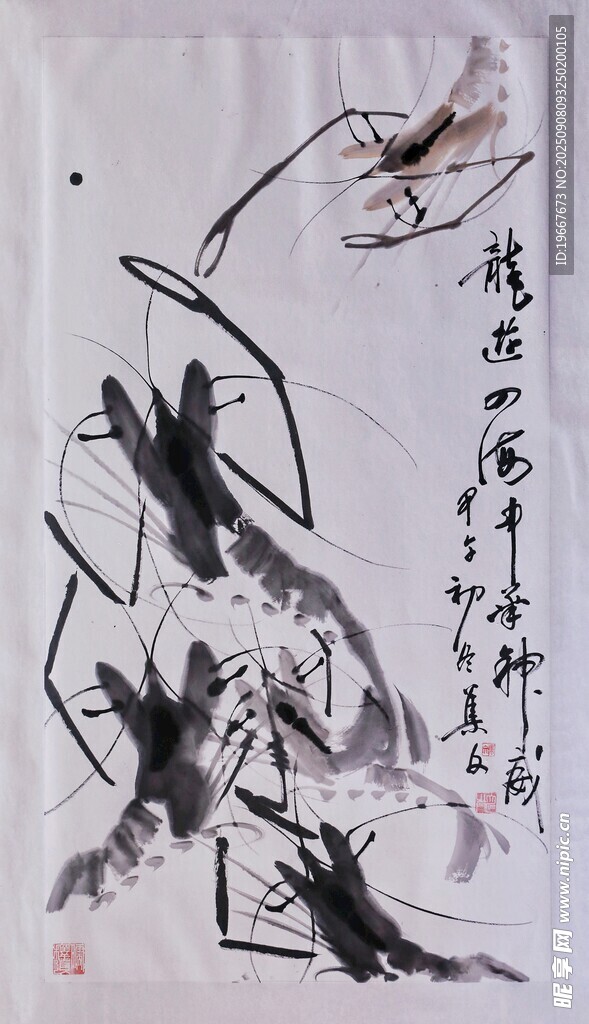 龍遊四海中華神威
甲午初冬
ID:19667673 NO:20250908093250200105
昵享网 www.nipic.cn